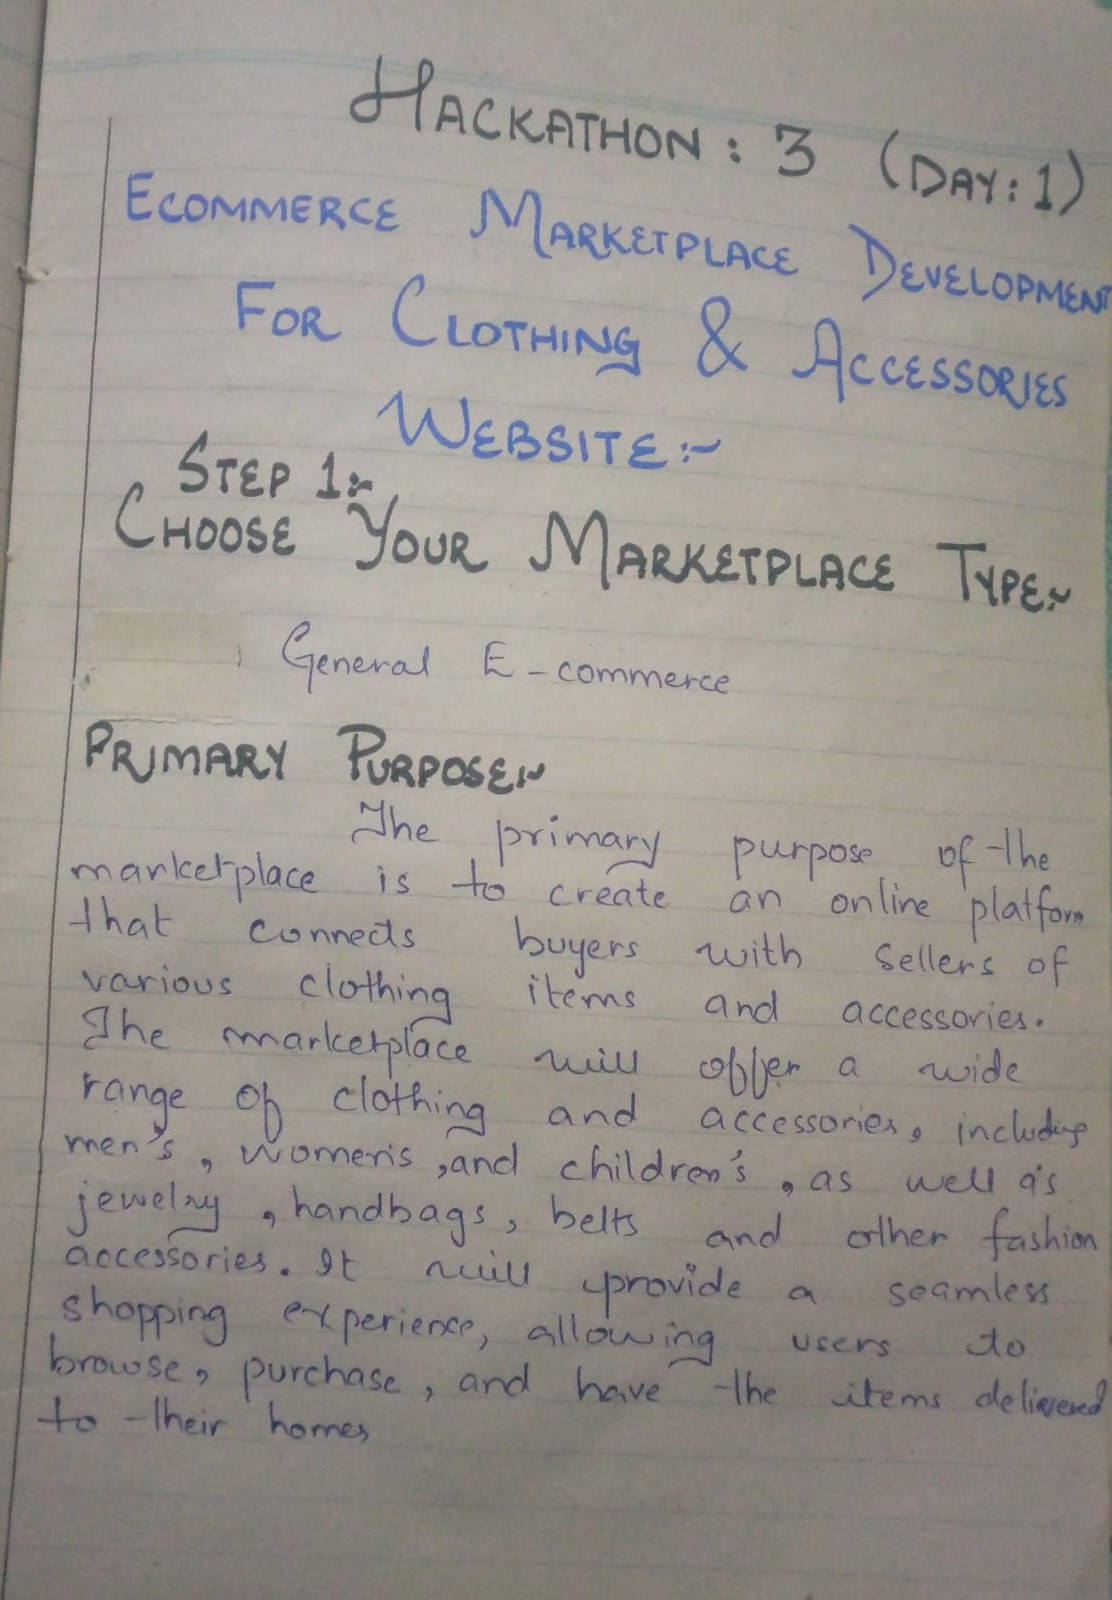 HACKATHON : 3 (DAY : 1)
ECOMMERCE MARKETPLACE DEVELOPMENT
FOR CLOTHING & ACCESSORIES
WEBSITE :~
STEP 1:~
CHOOSE YOUR MARKETPLACE TYPE:~
General E-commerce
PRIMARY PURPOSE:~
The primary purpose of the
marketplace is to create an online platform
that connects buyers with sellers of
various clothing items and accessories.
The marketplace will offer a wide
range of clothing and accessories, including
men's, women's, and children's, as well as
jewelry, handbags, belts and other fashion
accessories. It will provide a seamless
shopping experience, allowing users to
browse, purchase, and have the items delivered
to their homes